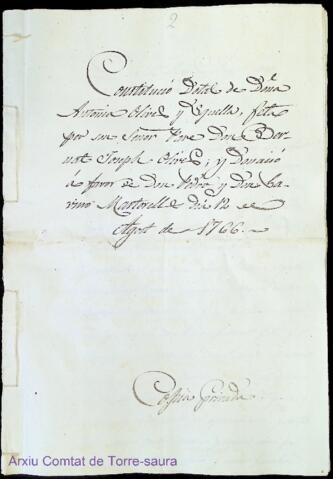 2
Constitució Dotal de Dña
Antonia Olives y Squella, feta
por su Señor Pare Don Ber-
nat Joseph Olives; y Donació
á favor de Don Pedro y Don Ga-
Martorell dia 12 de
Agost de 1766.
Copia
Arxiu Comtat de Torre-saura